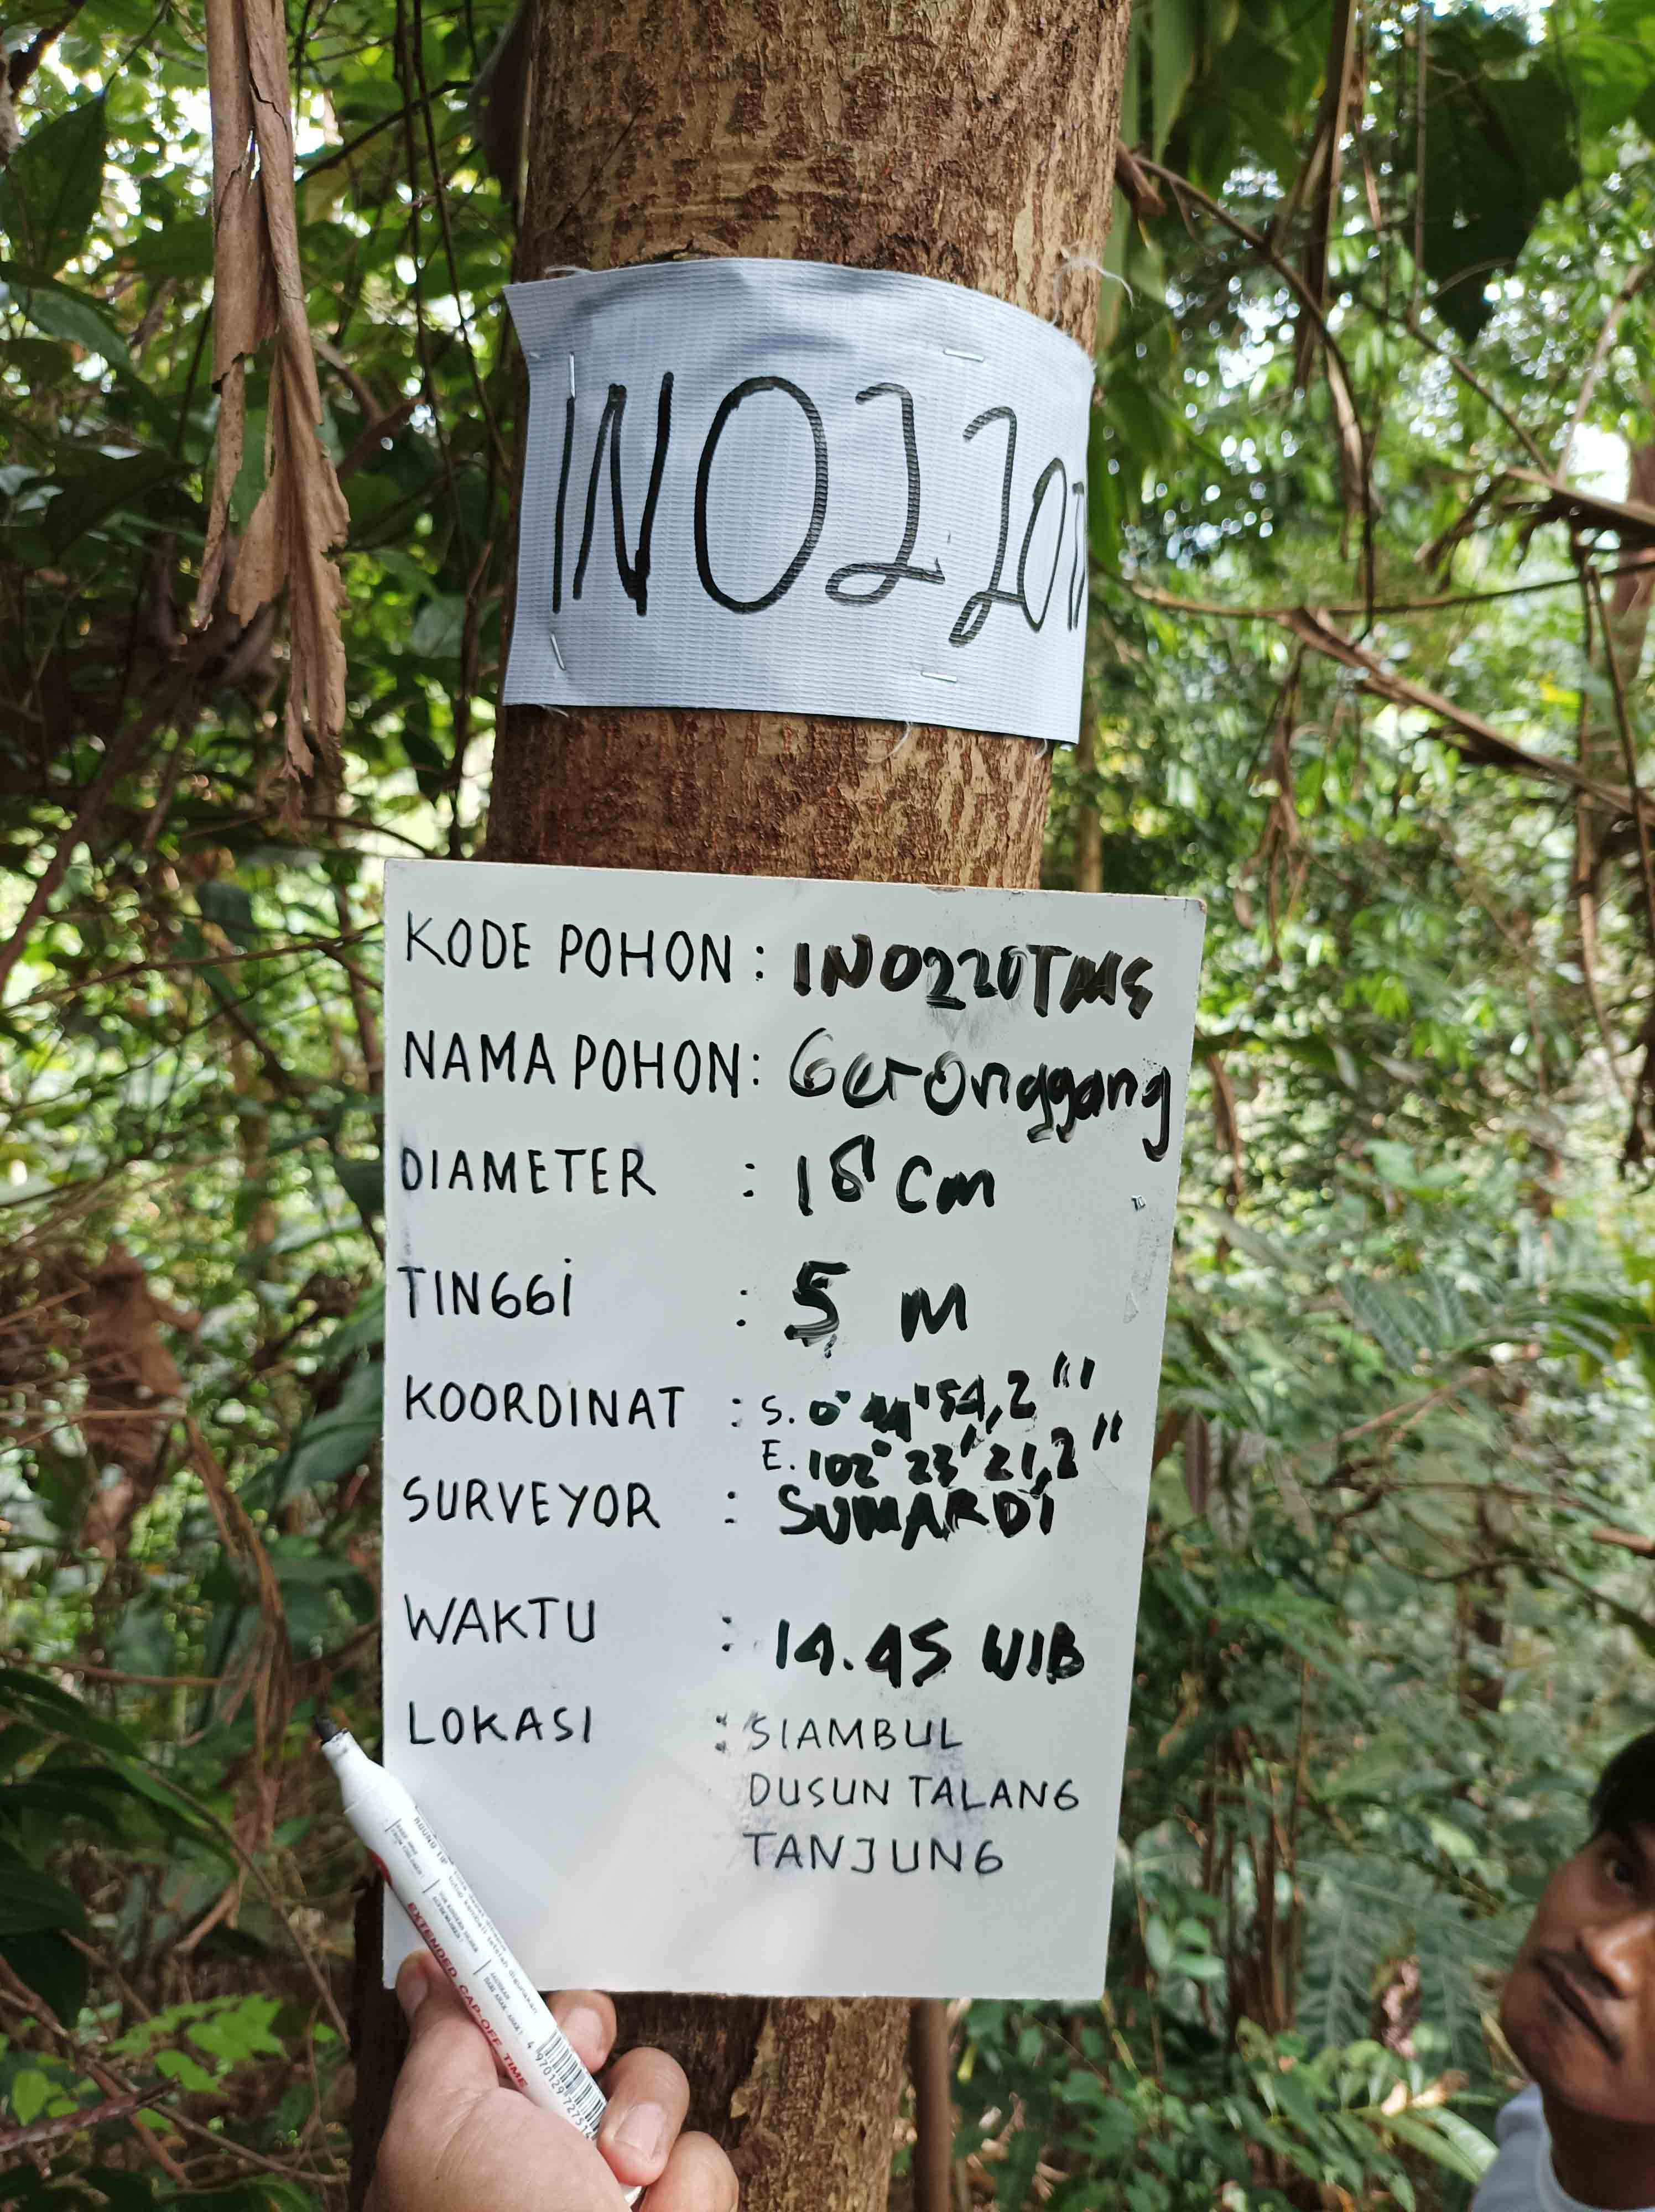 INO220T
KODE POHON : INO220TMS
NAMA POHON : Geronggang
DIAMETER : 18 cm
TINGGI : 5 M
KOORDINAT : S. 0° 44' 54,2 "'
E. 102° 23' 21,2 "
SURVEYOR : SUMARDI
WAKTU : 14.45 WIB
LOKASI : SIAMBUL
DUSUN TALANG
TANJUNG
EXTENDED CAP-OFF TIME